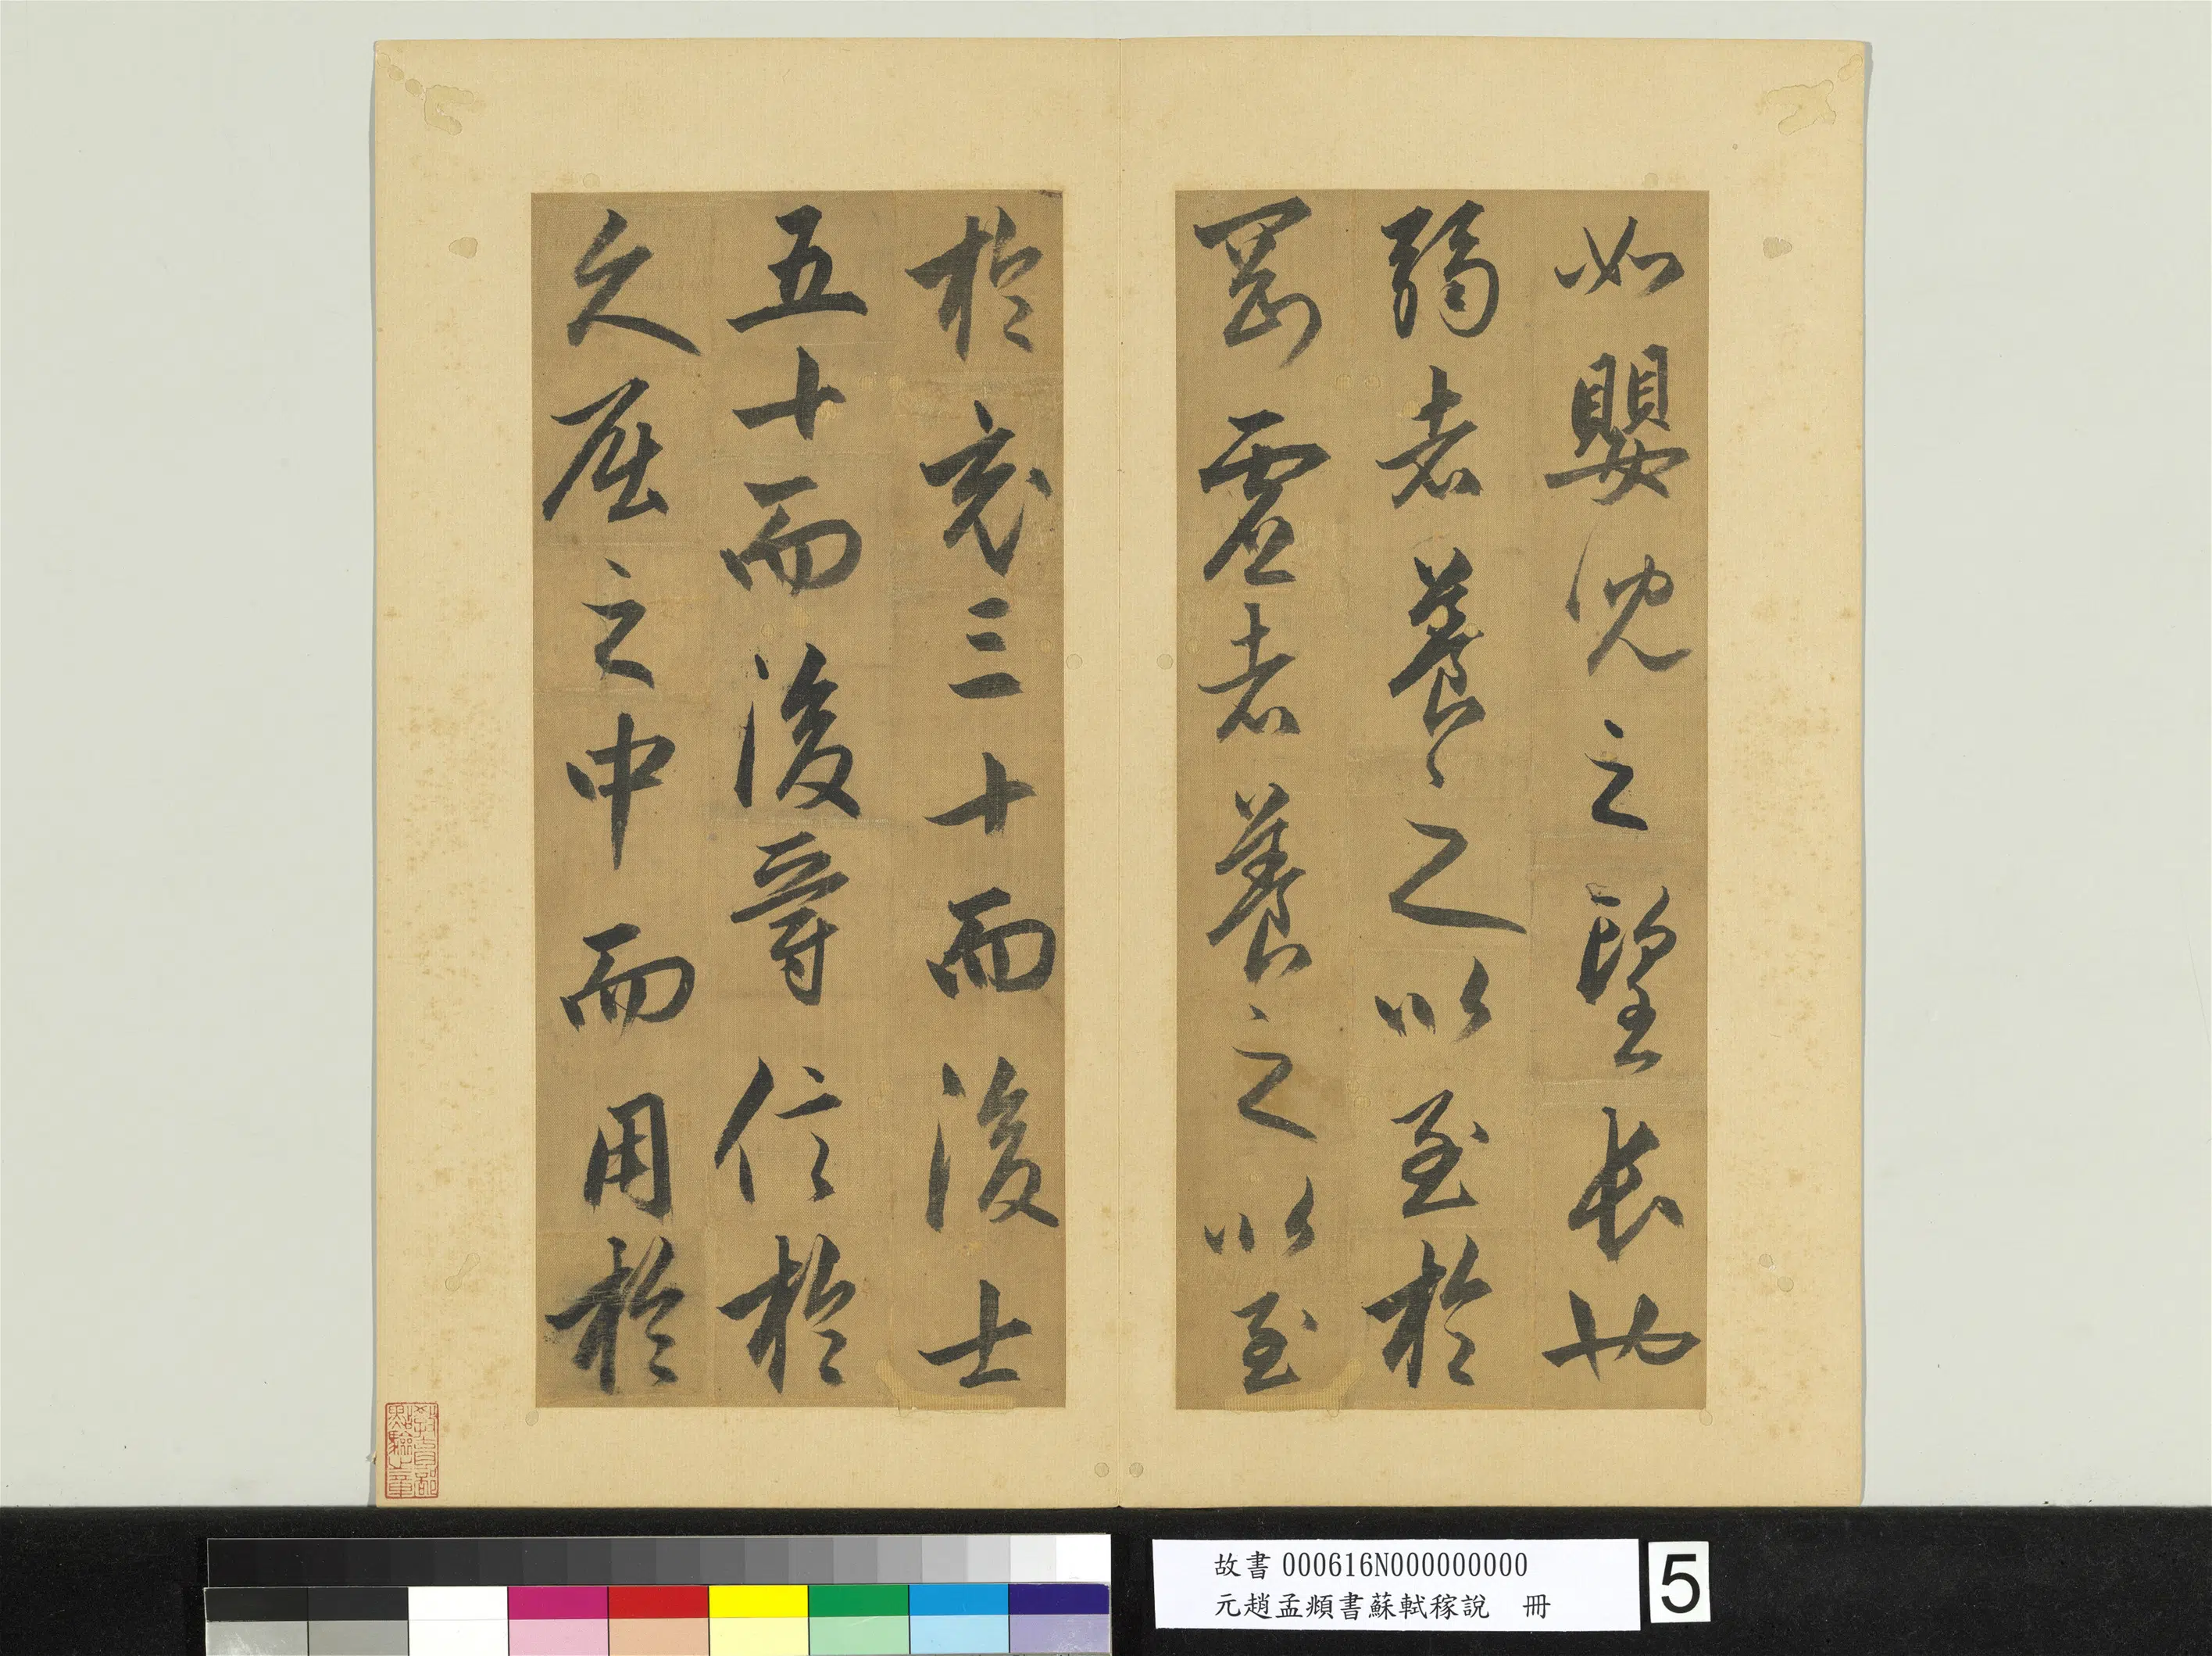 如嬰兒之望長也
弱者養之以至於
剛虛者養之以至
於充三十而後士
五十而後爵信於
久屈之中而用於
教育部
點驗之章
故書000616N000000000
元趙孟頫書蘇軾稼說 冊
5